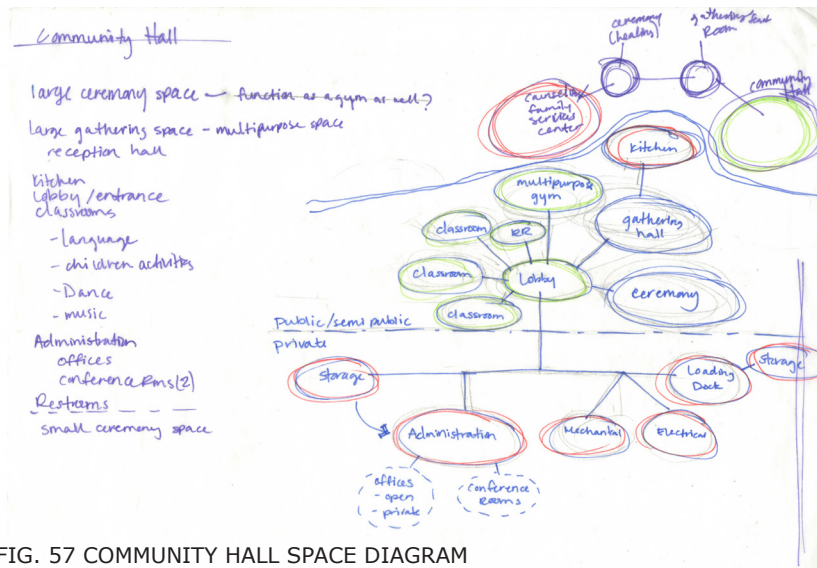 Community Hall
large ceremony space – function as a gym as well?
Large gathering space - multipurpose space
reception hall
Kitchen
Lobby/entrance
classrooms
- language
- children activities
- Dance
- music
Administration
offices
conference Rms (2)
Restrooms
small ceremony space
ceremony
(healing)
gathering
Room
community
Hall
counseling
family
services
center
Kitchen
multipurpose
gym
gathering
hall
classroom
RR
classroom
Lobby
ceremony
classroom
public/semi public
private
Storage
Loading
Dock
Storage
Administration
Mechanical
Electrical
offices
- open
- private
conference
Rooms
FIG. 57 COMMUNITY HALL SPACE DIAGRAM